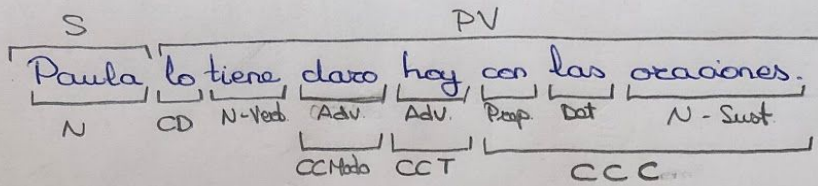 S PV
Paula lo tiene claro hoy con las oraciones.
N CD N-Verb. Adv. Adv. Prep. Det N - Sust.
CCModo CCT CCC